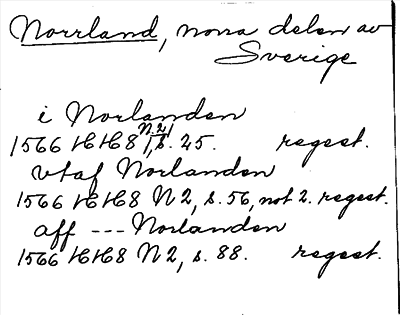 Norrland, norra delen av
Sverige
i Norlanden
1566 HH8 N.2, s. 25. regest.
vtaf Norlanden
1566 HH8 N 2, s. 56, not 2. regest.
aff --- Norlanden
1566 HH8 N 2, s. 88. regest.